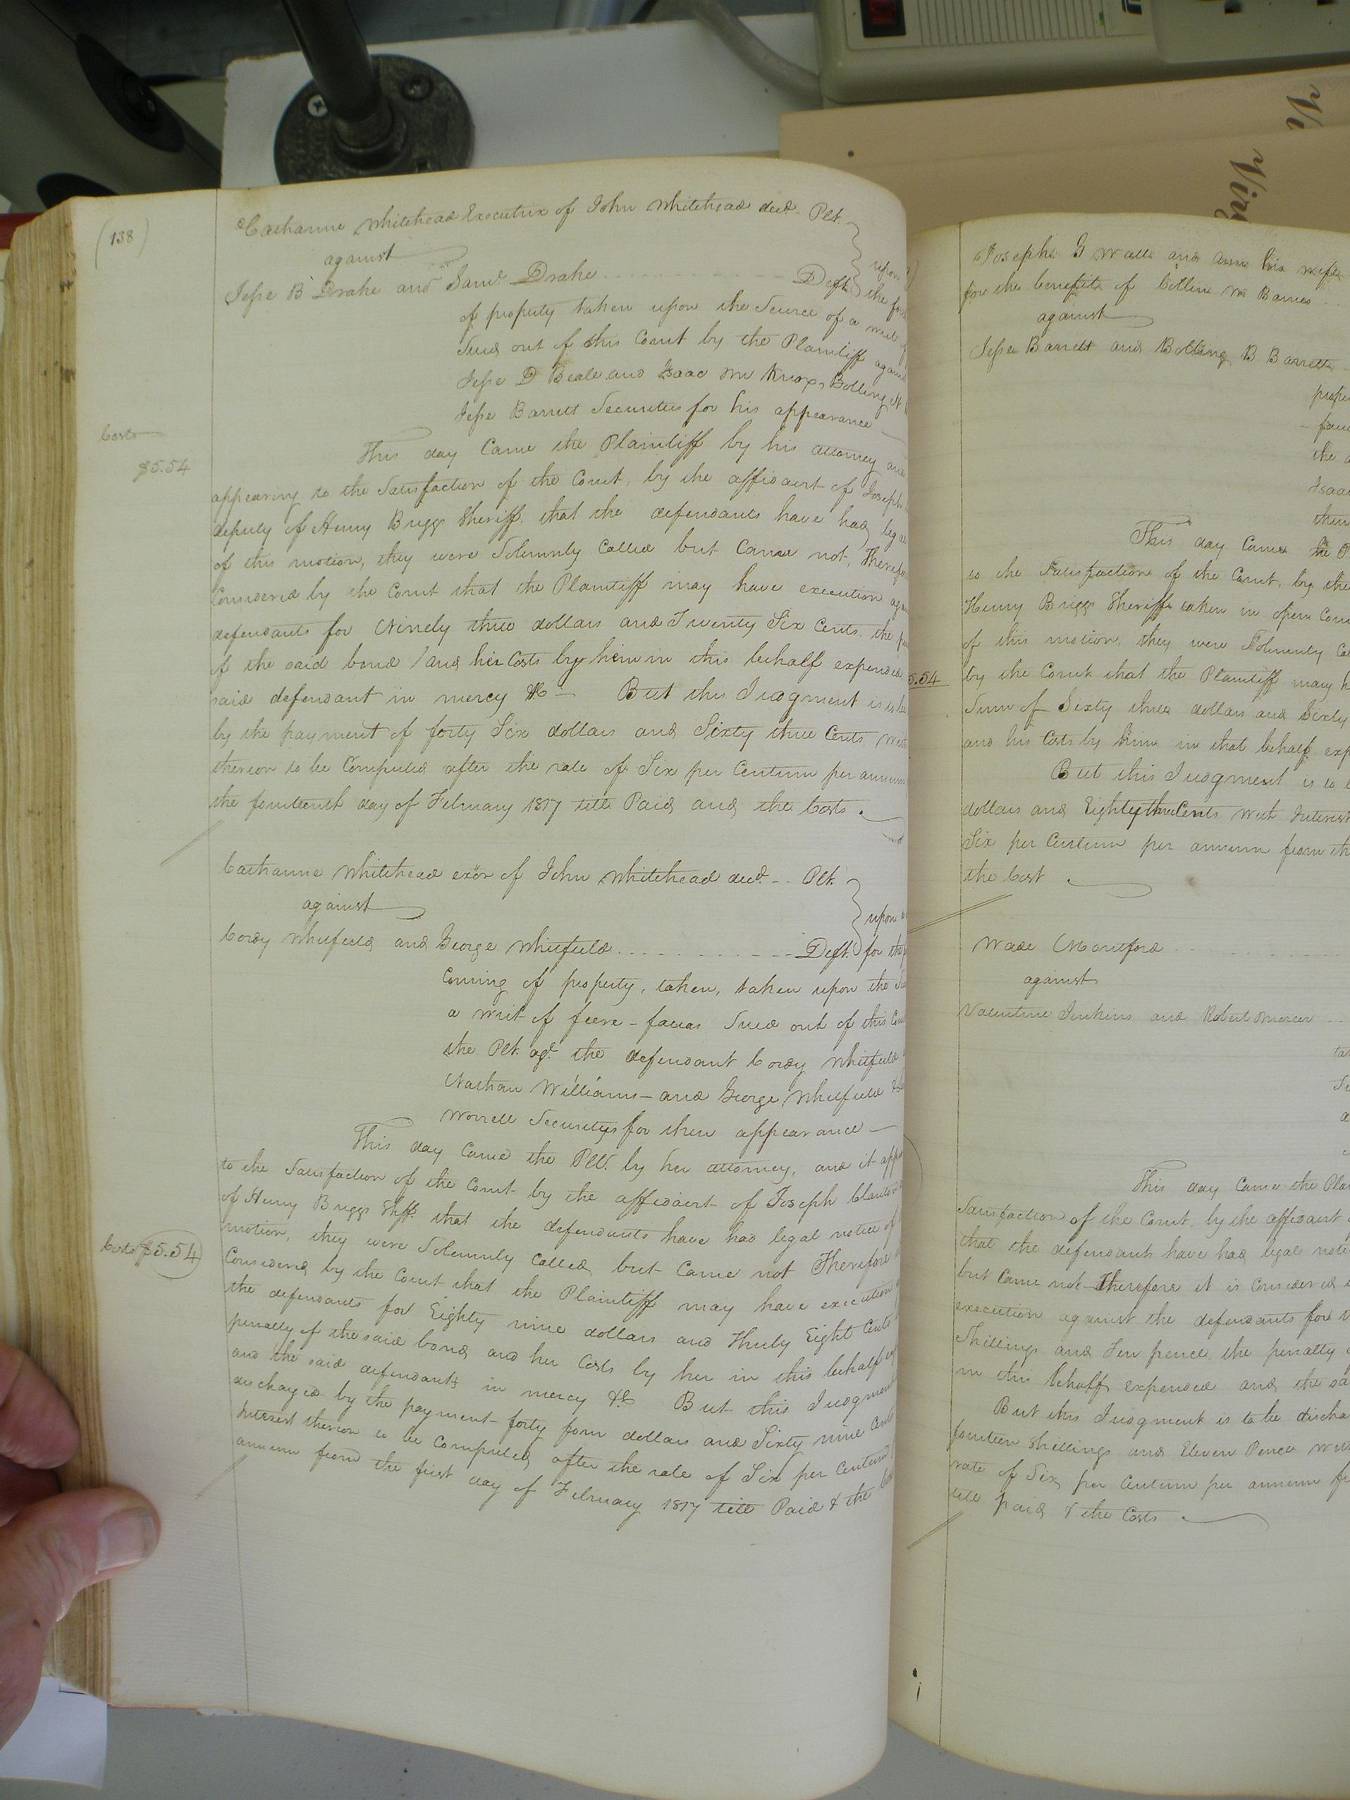 (138)
Catharine Whitehead Executrix of John Whitehead decd. Plt.
against
upon
Jesse B Drake and Saml Drake Deft. the
of property taken upon the Service of a writ
Sued out of this Court by the Plaintiff against
Jesse D Beale and Isaac Bolling
Jesse Barrett Securities for his appearance
Costs
$5.54
This day Came the Plaintiff by his attorney and
appearing to the Satisfaction of the Court, by the affidavit of Joseph
deputy of Henry Briggs Sheriff, that the defendants have had legal
of this motion, they were Solemnly Called but Came not, Therefore
Considered by the Court that the Plaintiff may have execution
defendants for Ninety three dollars and Twenty Six Cents, the
of the said bond / and his Costs by him in this behalf expended
said defendant in mercy &c But this Judgment is to be
by the payment of forty Six dollars and Sixty three Cents
thereon to be Computed after the rate of Six per Centum per annum
the fourteenth day of February 1817 till Paid and the Costs.
Catharine Whitehead exor of John Whitehead decd. Plt.
against
upon
Cordy Whitfield and George Whitfield Deft. for the
Coming of property, taken, taken upon the
a writ of fiere-facias Sued out of this
the Plt. agt. the defendant Cordy Whitfield
Nathan Williams and George Whitfield
Worrell Securitys for their appearance
This day Came the Plt. by her attorney, and it
to the Satisfaction of the Court by the affidavit of Joseph
of Henry Briggs Shff. that the defendants have had legal notice of
motion, they were Solemnly Called but Came not Therefore
Costs $5.54
Considered by the Court that the Plaintiff may have execution
the defendants for Eighty nine dollars and Thirty Eight Cents
penalty of the said bond and her Costs by her in this behalf
and the said defendants in mercy &c But this Judgment
discharged by the payment forty four dollars and Sixty nine Cents
Interest thereon to be Computed after the rate of Six per Centum
annum from the first day of February 1817 till Paid & the
Josephs G Wall and Ann his wife
for the benefit of Barnes
against
Jesse Barrett and Bolling B Barrett
the
Isaac
This day Came the
to the Satisfaction of the Court, by the
Henry Briggs Sheriff taken in open
of this motion, they were Solemnly
5.54
by the Court that the Plaintiff may
Sum of Sixty three dollars and Sixty
and his Costs by him in that behalf
But this Judgment is to
dollars and Eighty three Cents with Interest
Six per Centum per annum from
the Cost
Wade Mountford
against
Valentine Jenkins and Robert Mercer
This day Came the
Satisfaction of the Court, by the affidavit
that the defendants have had legal
but Came not Therefore it is Considered
execution against the defendants for
Shillings and Ten pence, the penalty
in this behalf expended and the
But this Judgment is to be
fourteen Shillings and Eleven Pence with
rate of Six per Centum per annum
till paid & the Costs